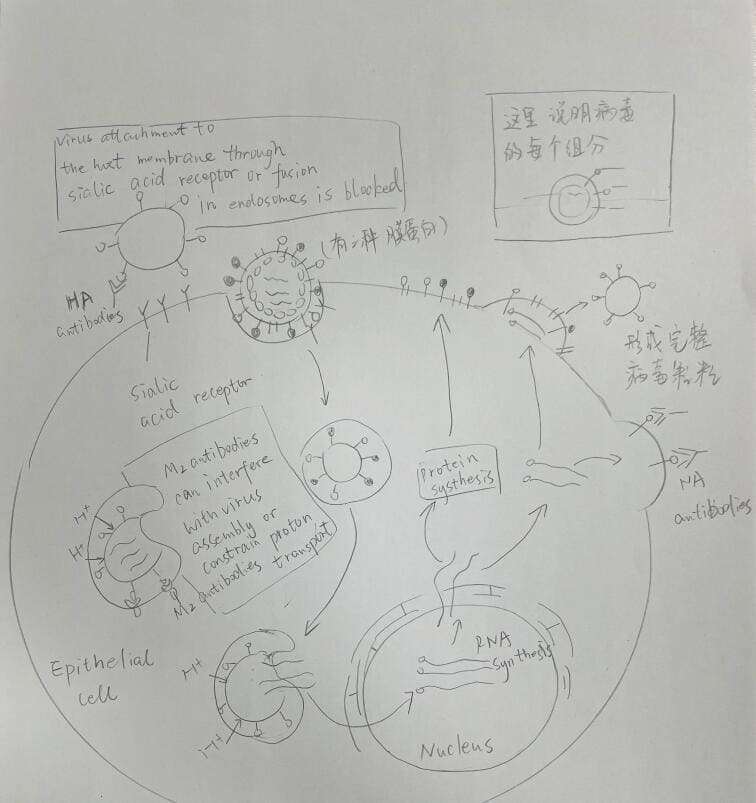 Virus attachment to
the host membrane through
sialic acid receptor or fusion
in endosomes is blocked
这里说明病毒
的每个组分
(有二种膜蛋白)
HA
antibodies
sialic
acid receptor
形成完整
病毒颗粒
M2 antibodies
can interfere
with virus
assembly or
constrain proton
transport
H+
H+
M2 antibodies
Protein
systhesis
NA
antibodies
Epithelial
cell
H+
H+
RNA
synthesis
Nucleus